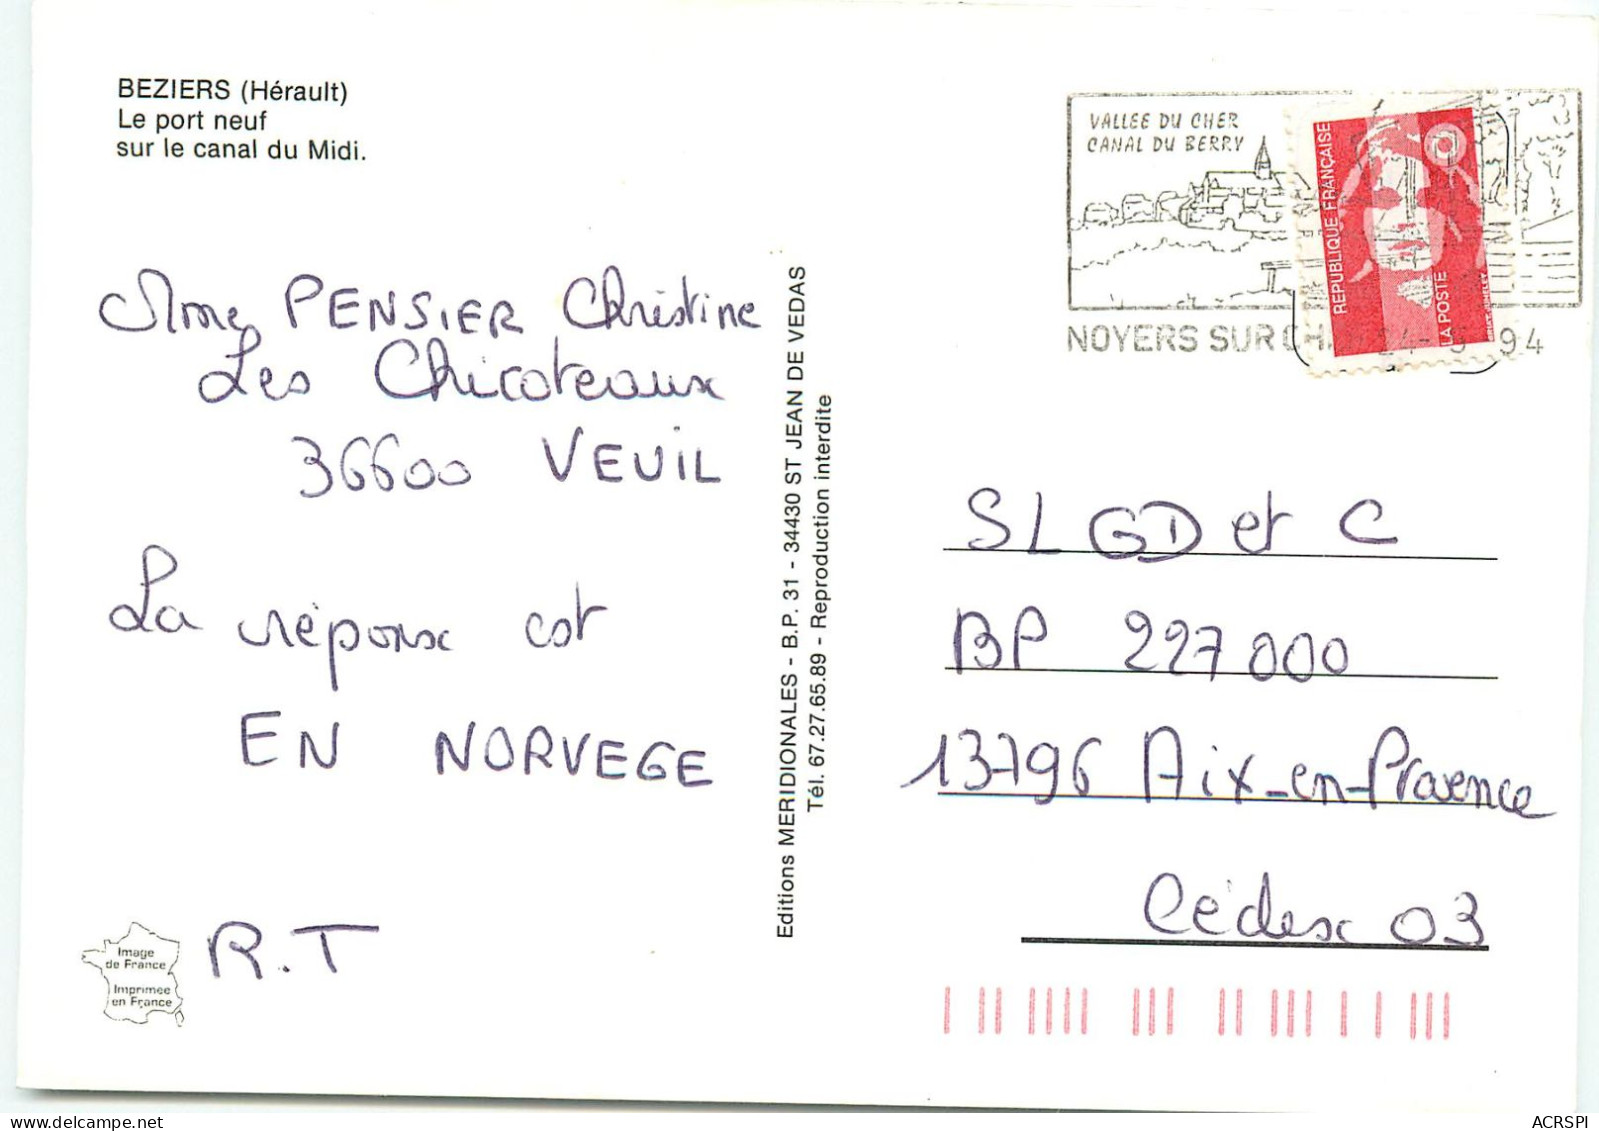 BEZIERS (Hérault)
Le port neuf
sur le canal du Midi.
Mme PENSIER Christine
Les Chicoteaux
36600 VEUIL
La réponse est
EN NORVEGE
R.T
Image
de France
Imprimée
en France
Editions MERIDIONALES - B.P. 31 - 34430 ST JEAN DE VEDAS
Tél. 67.27.65.89 - Reproduction interdite
VALLEE DU CHER
CANAL DU BERRY
NOYERS SUR CH
94
REPUBLIQUE FRANÇAISE
LA POSTE
SLGD et C
BP 227000
13796 Aix-en-Provence
Cédex 03
ACRSPI